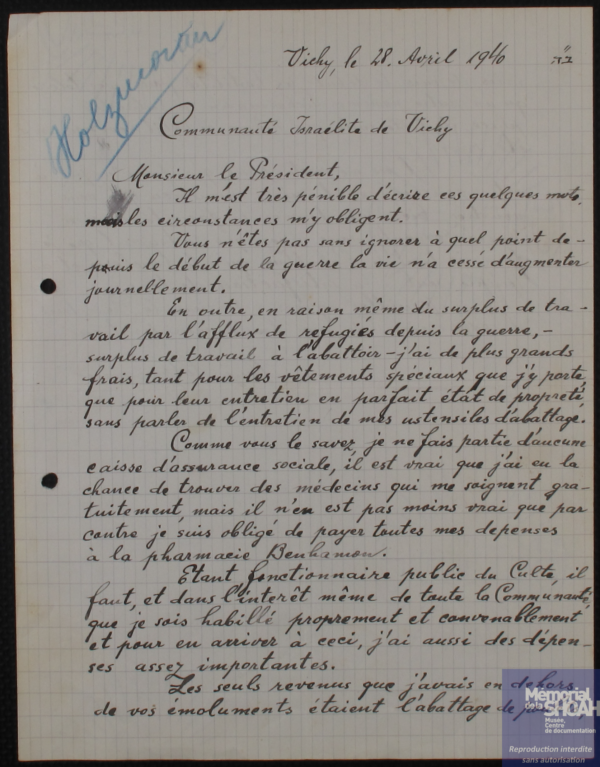 Vichy, le 28. Avril 1940
ב"ה
Holzwortier
Communauté Israélite de Vichy
Monsieur le Président,
Il m'est très pénible d'écrire ces quelques mots,
mais les circonstances m'y obligent.
Vous n'êtes pas sans ignorer à quel point de-
puis le début de la guerre la vie n'a cessé d'augmenter
journellement.
En outre, en raison même du surplus de tra-
vail par l'afflux de refugiés depuis la guerre, -
surplus de travail à l'abattoir - j'ai de plus grands
frais, tant pour les vêtements spéciaux que j'y porte,
que pour leur entretien en parfait état de propreté,
sans parler de l'entretien de mes ustensiles d'abattage.
Comme vous le savez, je ne fais partie d'aucune
caisse d'assurance sociale, il est vrai que j'ai eu la
chance de trouver des médecins qui me soignent gra-
tuitement, mais il n'en est pas moins vrai que par
contre je suis obligé de payer toutes mes depenses
à la pharmacie Benhamou.
Etant fonctionnaire public du Culte, il
faut, et dans l'intérêt même de toute la Communauté,
que je sois habillé proprement et convenablement
et pour en arriver à ceci, j'ai aussi des dépen-
ses assez importantes.
Les seuls revenus que j'avais en dehors
de vos émoluments étaient l'abattage de
Mémorial
de la SHOAH
Musée,
Centre
de documentation
Reproduction interdite
sans autorisation